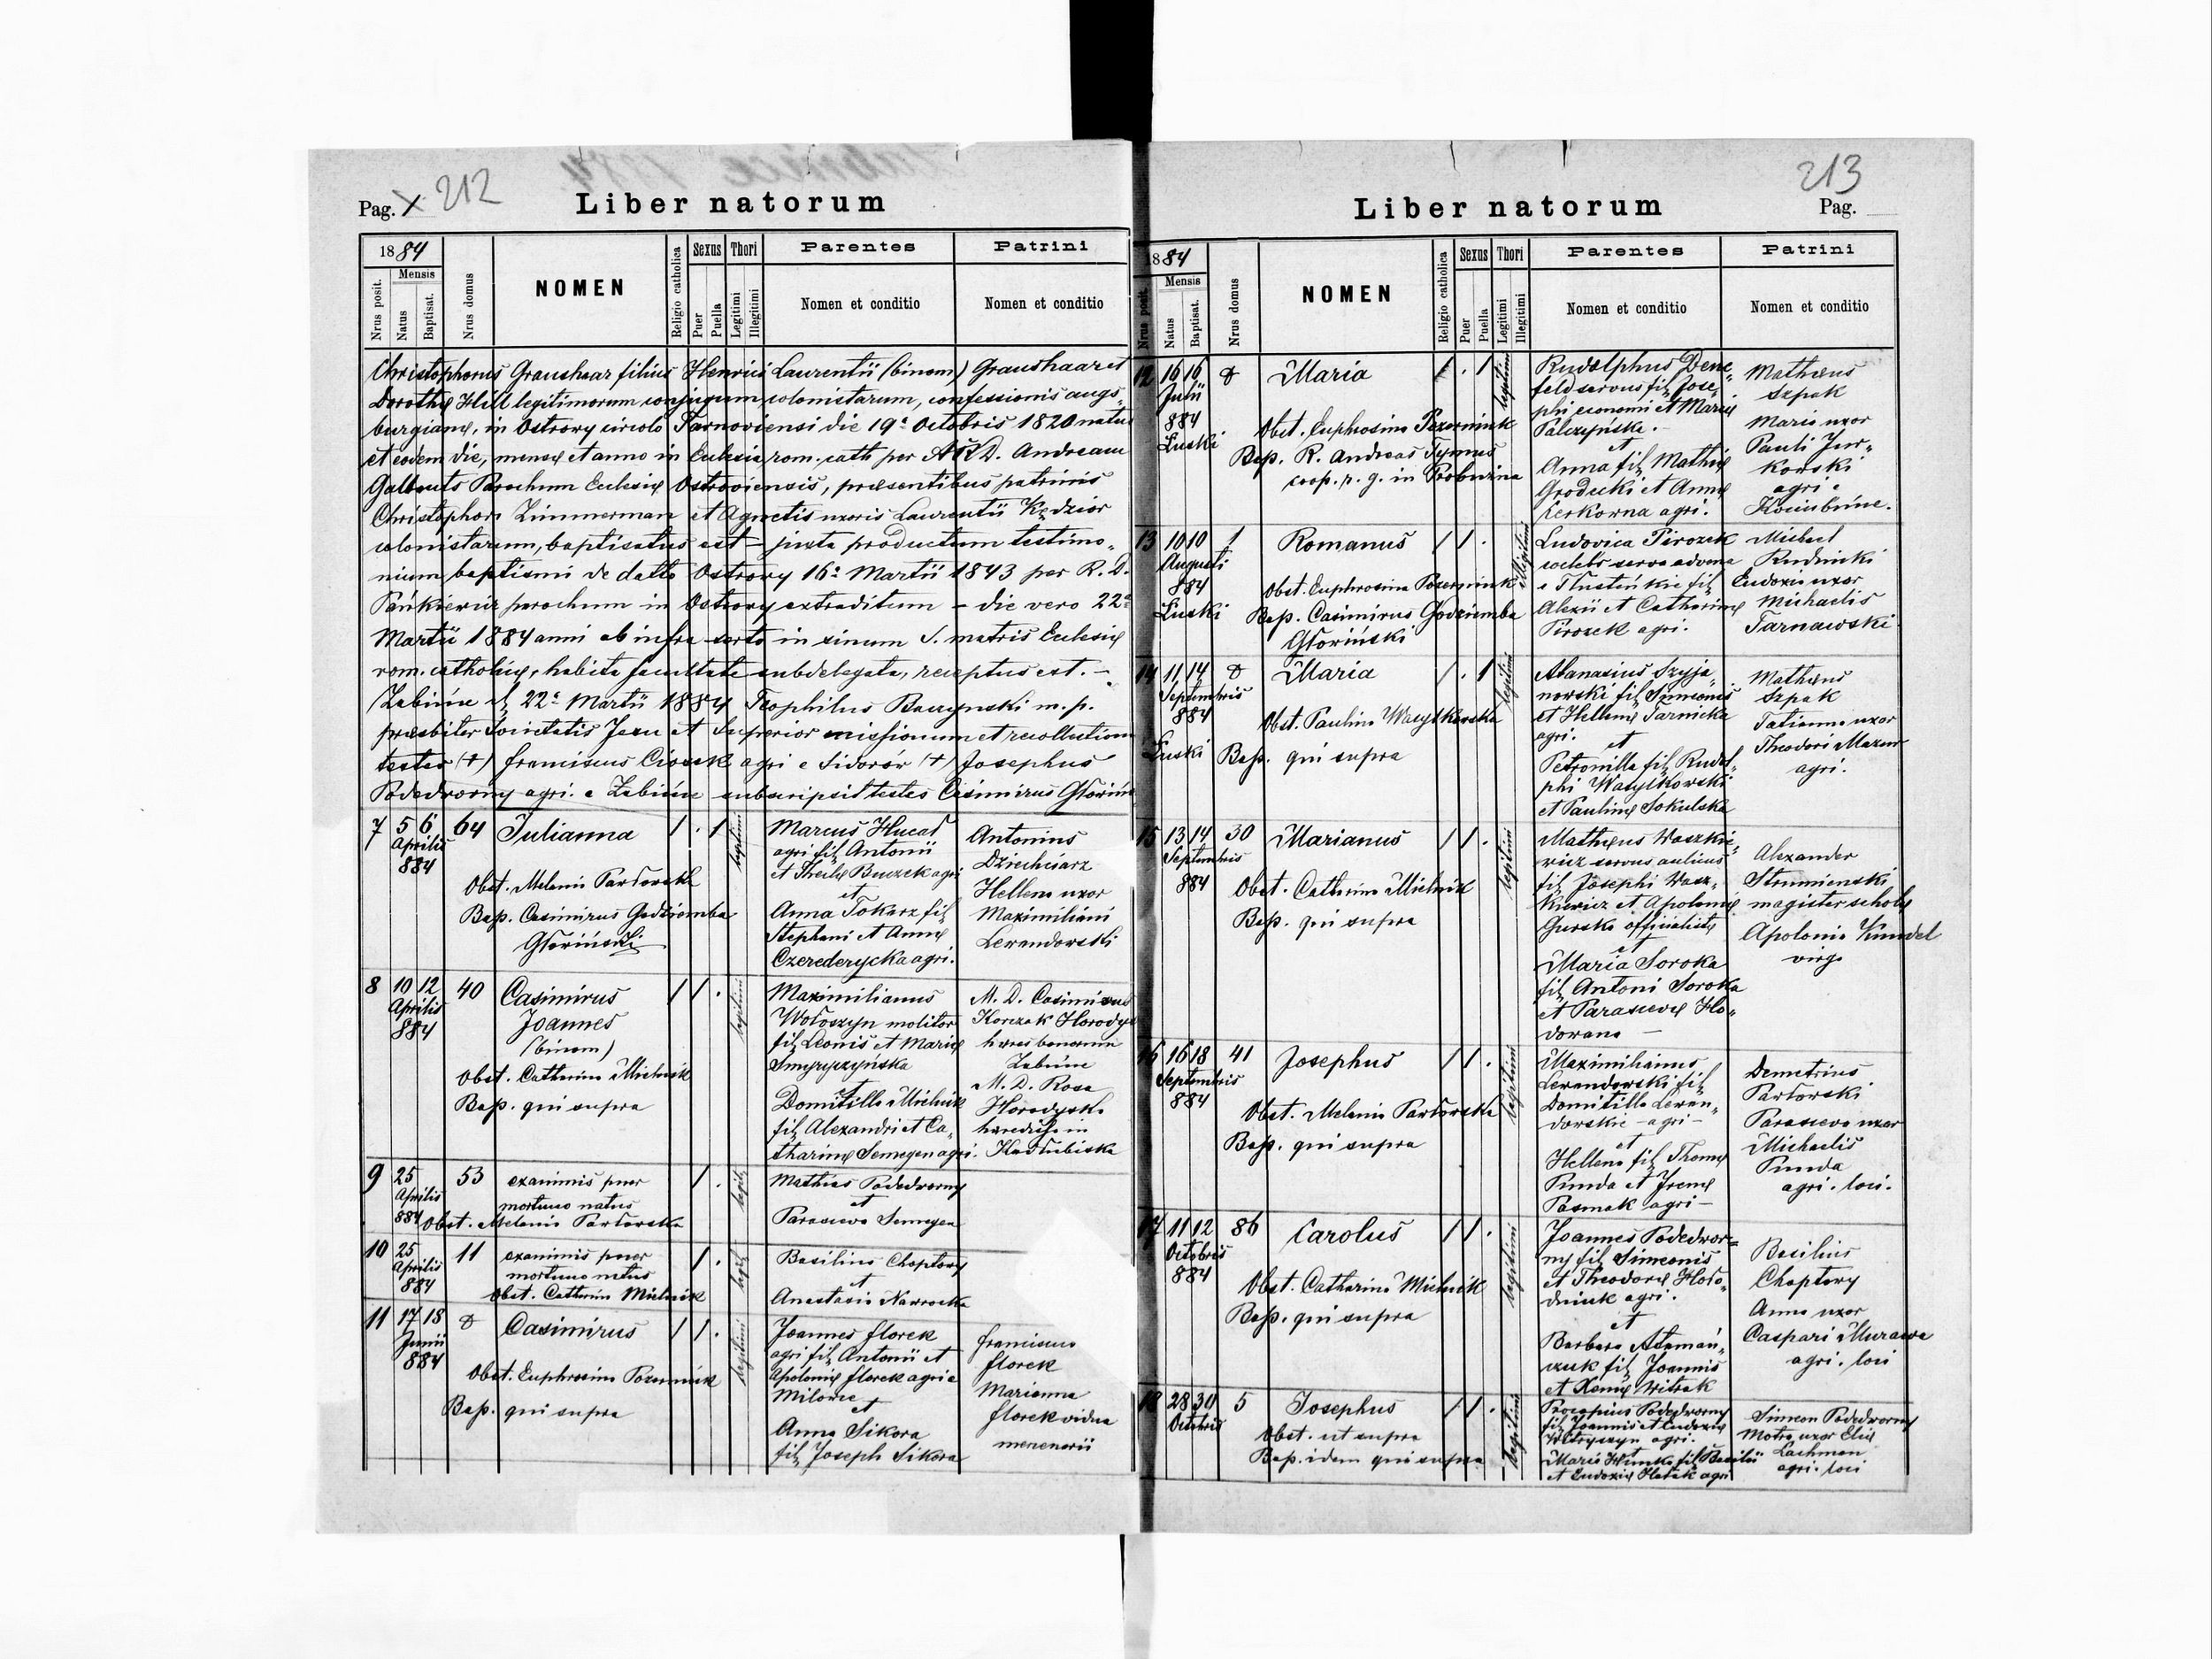 212
Pag. X
Liber natorum
1884
Nrus posit.
Mensis
Natus
Baptisat.
Nrus domus
NOMEN
Religio catholica
Sexus
Puer
Puella
Thori
Legitimi
Illegitimi
Parentes
Nomen et conditio
Patrini
Nomen et conditio
Christophorus Graushaar filius Henrici Laurentii (binom) Graushaar et
Dorotheę Hill legitimorum conjugum colonistarum, confessionis augs„
burgianę, in Ostrovy circulo Tarnoviensi die 19ª Octobris 1820 natus
et eodem die, mense et anno in Eclesia rom. cath per ARD. Andream
Parochum Eclesię Ostroviensis, praesentibus patrinis
Christophori Zimmerman et Agnetis uxoris Laurentii Kędzior
colonistarum, baptisatus est – juxta productum testimo„
nium baptismi de datto Ostrovy 16ª Martii 1843 per R. D.
Pańkiewicz parochum in Ostrovy extraditum – die vero 22ª
Martii 1884 anni ab infra serto in sinum S. matris Eclesię
rom. catholicę, habita facultate subdelegata, receptus est. –
Żabińce d. 22ª Martii 1884 Teophilus Baczynski m. p.
presbiter Societatis Jesu et Superior missionum et recollectionum
testes (+) franciscus Ciosek agri e Sidorów (+) Josephus
Podedworny agri. e Żabińce subscripsit testes Casimirus Głoriński
7 5 6 Aprilis 884 64 Julianna 1 . 1 legitimi
Obst. Melania Parłovska
Bap. Casimirus Godziemba
Głoriński
Marcus Hucał
agri fil. Antonii
et Theclę Buczek agri
et
Anna Tokarz fil
Stephani et Annę
Czerederycka agri.
Antonius
Dziechciarz
Hellena uxor
Maximiliani
Lewandowski
8 10 12 Aprilis 884 40 Casimirus 1 1 . legitimi
Joannes
(binom)
Obst. Catharina Mielnik
Bap. qui supra
Maximilianus
Wołoszyn molitor
fil. Leonis et Marię
et
Domitilla Mielnik
fil. Alexandri et Ca„
tharinę Semegen agri.
M. D. Casimirus
Korczak Horodyski
hæres bonorum
Żabińce
M. D. Rosa
Horodyska
hæredissa in
Kadłubiska
9 25 Aprilis 884 53 exanimis puer 1 . legit.
mortuus natus
Obst. Melania Parłovska
Mathias Podedworny
et
Parascewa Semegen
10 25 Aprilis 884 11 exanimis puer 1 . legit.
mortuus natus
Obst. Catharina Mielnik
Basilius Choptovy
et
Anastasia Nawrocka
11 17 18 Junii 884 8 Casimirus 1 1 . legitimi
Obst. Euphrosina
Bap. qui supra
Joannes florek
agri fil. Antonii et
Apolonię florek agri e
Milowce
et
Anna Sikora
fil. Joseph Sikora
franciscus
florek
Marianna
florek vidua
213
Liber natorum
Pag.
1884
Nrus posit.
Mensis
Natus
Baptisat.
Nrus domus
NOMEN
Religio catholica
Sexus
Puer
Puella
Thori
Legitimi
Illegitimi
Parentes
Nomen et conditio
Patrini
Nomen et conditio
12 16 16 Julii 884 Łuski 8 Maria 1 . 1 legitimi
Obst. Euphrosina
Bap. R. Andreas Tymus
coop. r. g. in Probuzna
Rudolphus Dene„
feld servus fil. Jose„
phi economi et Marię
Palczyńska. –
et
Anna fil. Mathię
Grodecki et Annę
Cerkowna agri.
Matheus
Szpak
Maria uxor
Pauli Jur„
kowski
agri e
Kociubińce.
13 10 10 Augusti 884 Łuski 1 Romanus 1 1 . illegitimi
Obst. Euphrosina
Bap. Casimirus Godziemba
Głoriński
Ludovica Pirozek
celebs serva advena
e Tłusteńkie fil.
Alexii et Catharinę
Pirozek agri.
Michael
Rudnicki
Eudoxia uxor
Michaelis
Tarnawski
14 11 14 Septembris 884 Łuski 8 Maria 1 . 1 legitimi
Obst. Paulina Wasylkowska
Bap. qui supra
Atanasius Szyja„
nowski fil. Simeonis
et Hellenę Tarnicka
agri. et
Petronilla fil. Rudol„
phi Wasylkowski
et Paulinę Sokulska
Matheus
Szpak
Tatianna uxor
Theodori Mazur
agri.
15 13 14 Septembris 884 30 Marianus 1 1 . legitimi
Obst. Catharina Mielnik
Bap. qui supra
Matheus Waszkie„
wicz servus aulicus
fil. Josephi Wasz„
kiewicz et Apolonię
Gurska officialistę
et
Maria Soroka
fil. Antoni Soroka
et Parascewę Ho„
dovana –
Alexander
Strumienski
magister scholę
Apolonia Kundel
virgo
16 16 18 Septembris 884 41 Josephus 1 1 . legitimi
Obst. Melania Parłovska
Bap. qui supra
Maximilianus
Lewandowski fil.
Domitilla Lewan„
dovskie – agri –
et
Hellena fil. Thomę
Punda et Irenę
Pasmak agri –
Demetrius
Parłovski
Parascewa uxor
Michaelis
Punda
agri. loci.
17 11 12 Octobris 884 86 Carolus 1 1 . legitimi
Obst. Catharina Mielnik
Bap. qui supra
Joannes Podedwor„
ny fil. Simeonis
et Theodorę Hoło„
dniuk agri.
et
Barbara Ataman„
czuk fil. Joannis
et Xenię Witrak
Basilius
Choptovy
Anna uxor
Caspari Murawa
agri. loci
18 28 30 Octobris 5 Josephus 1 1 . legitimi
Obst. ut supra
Bap. idem qui supra
Procopius Podedworny
fil. Joannis et Eudoxię
agri.
Maria fil. Basilii
et Eudoxię agri
Simeon Podedworny
Motra uxor Elię
Lachman
agri. loci